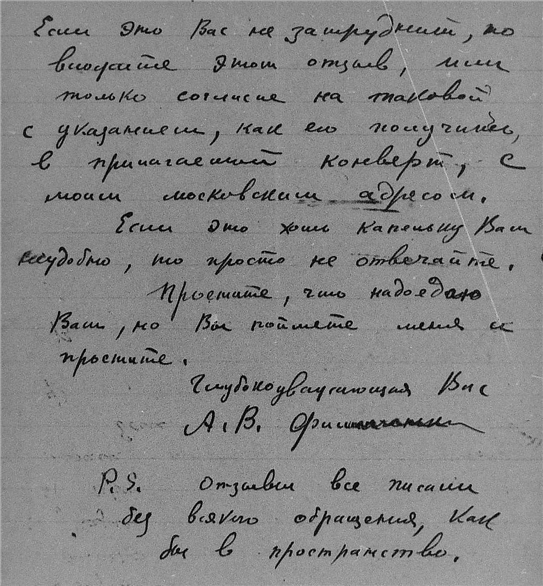 Если это Вас не затруднит, то
вложите этот отзыв, или
только согласие на таковой
с указанием, как его получить,
в прилагаемый конверт, с
моим московским адресом.
Если это хоть капельку Вам
неудобно, то просто не отвечайте.
Простите, что надоедаю
Вам, но Вы поймете меня и
простите.
Глубокоуважающая Вас
А. В.
P.S. Отзывы все писали
без всякого обращения, как
бы в пространство.